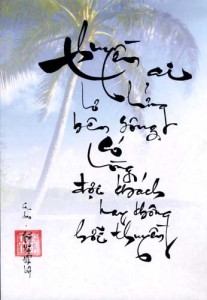 thuyền ai
lơ lửng
bên sông
Có lòng
đợi khách
hay không
hỡi thuyền